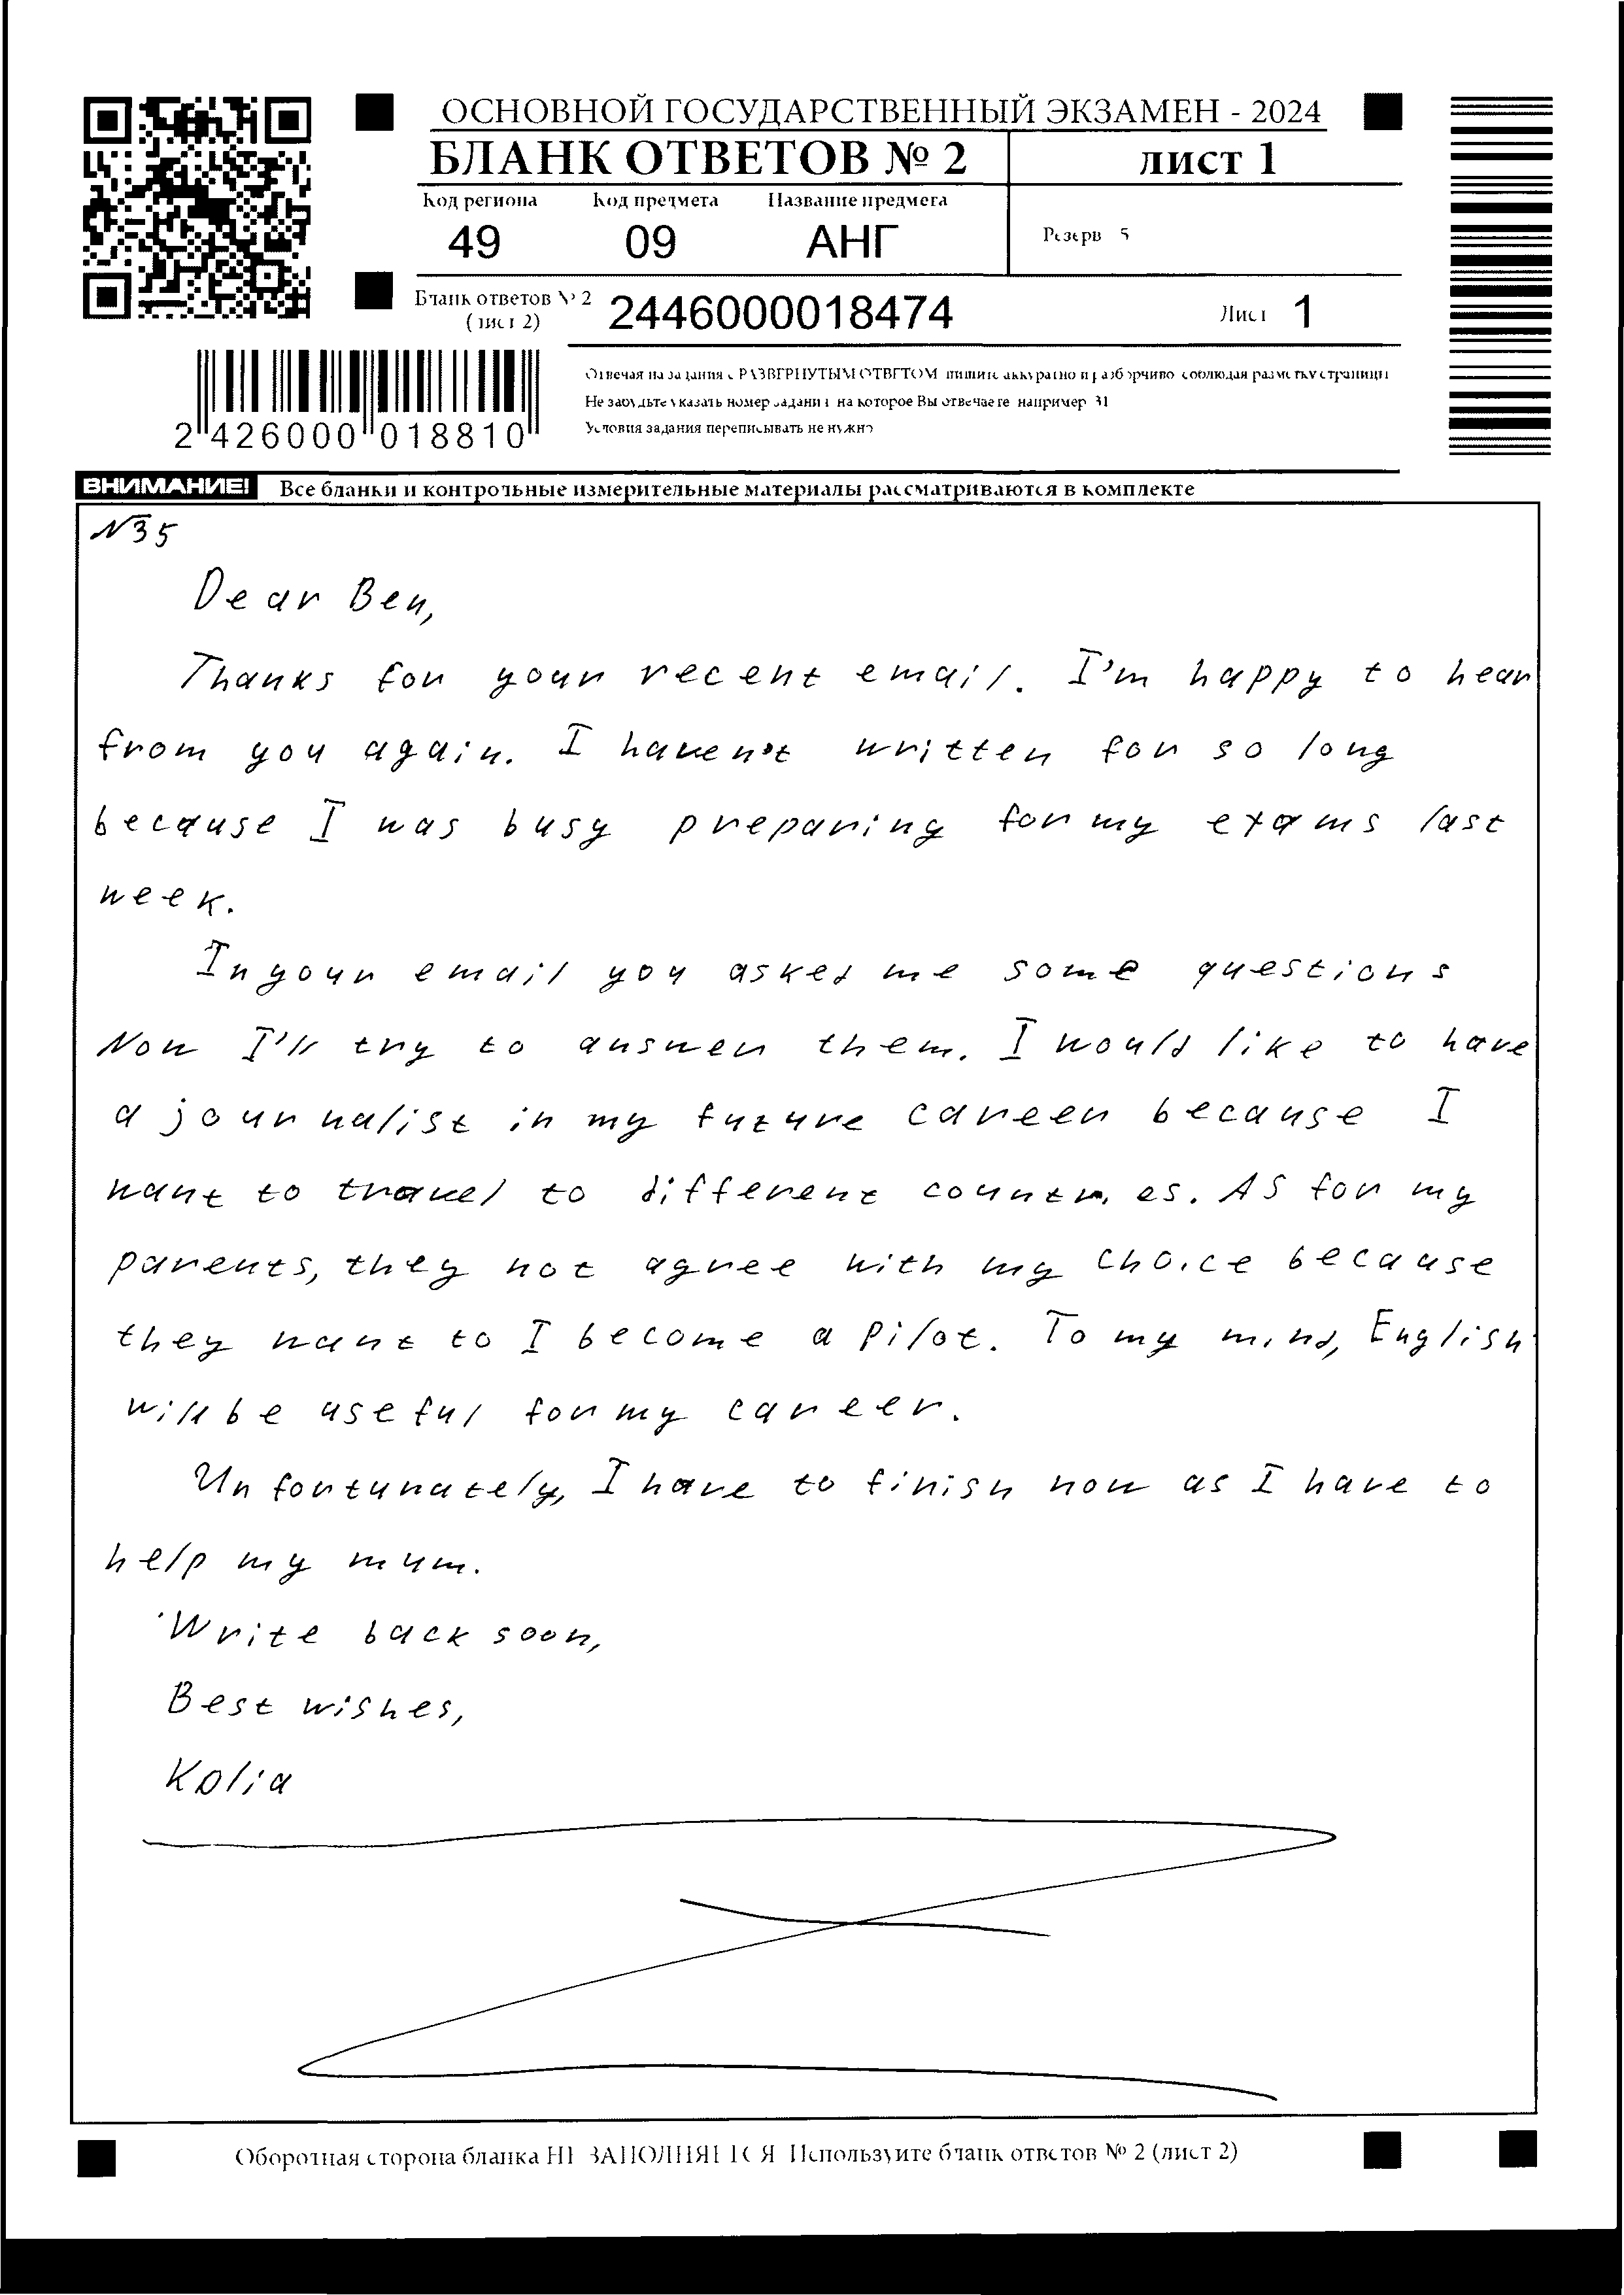 ОСНОВНОЙ ГОСУДАРСТВЕННЫЙ ЭКЗАМЕН - 2024
БЛАНК ОТВЕТОВ № 2 лист 1
Код региона Код предмета Название предмета
49 09 АНГ
Резерв 5
Бланк ответов № 2
(лист 2) 2446000018474 Лист 1
Отвечая на задания с РАЗВЕРНУТЫМ ОТВЕТОМ пишите аккуратно и разборчиво соблюдая разметку страницы
Не забудьте указать номер задания на которое Вы отвечаете например 31
Условия задания переписывать не нужно
2 426000 018810
ВНИМАНИЕ! Все бланки и контрольные измерительные материалы рассматриваются в комплекте
№35
Dear Ben,
Thanks for your recent email. I'm happy to hear
from you again. I haven't written for so long
because I was busy preparing for my exams last
week.
In your email you asked me some questions
Now I'll try to answer them. I would like to have
a journalist in my future career because I
want to travel to different countries. As for my
parents, they not agree with my choice because
they want to I become a pilot. To my mind, English
will be useful for my career.
Unfortunately, I have to finish now as I have to
help my mum.
Write back soon,
Best wishes,
Kolia
Оборотная сторона бланка НЕ ЗАПОЛНЯЕТСЯ Используйте бланк ответов № 2 (лист 2)